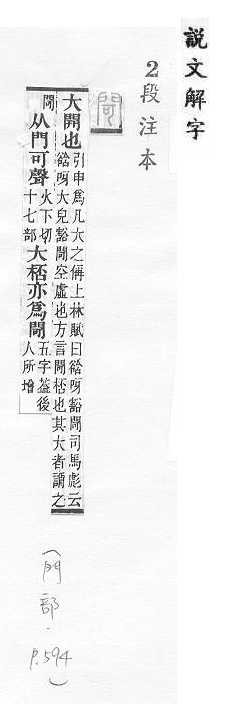 說文解字
2段注本
閜
大開也引申爲凡大之偁上林賦曰谽呀豁閜司馬彪云
谽呀大皃豁閜空虛也方言閜桮也其大者謂之
閜从門可聲火下切
十七部大桮亦爲閜五字蓋後
人所增
(門部.P.594)